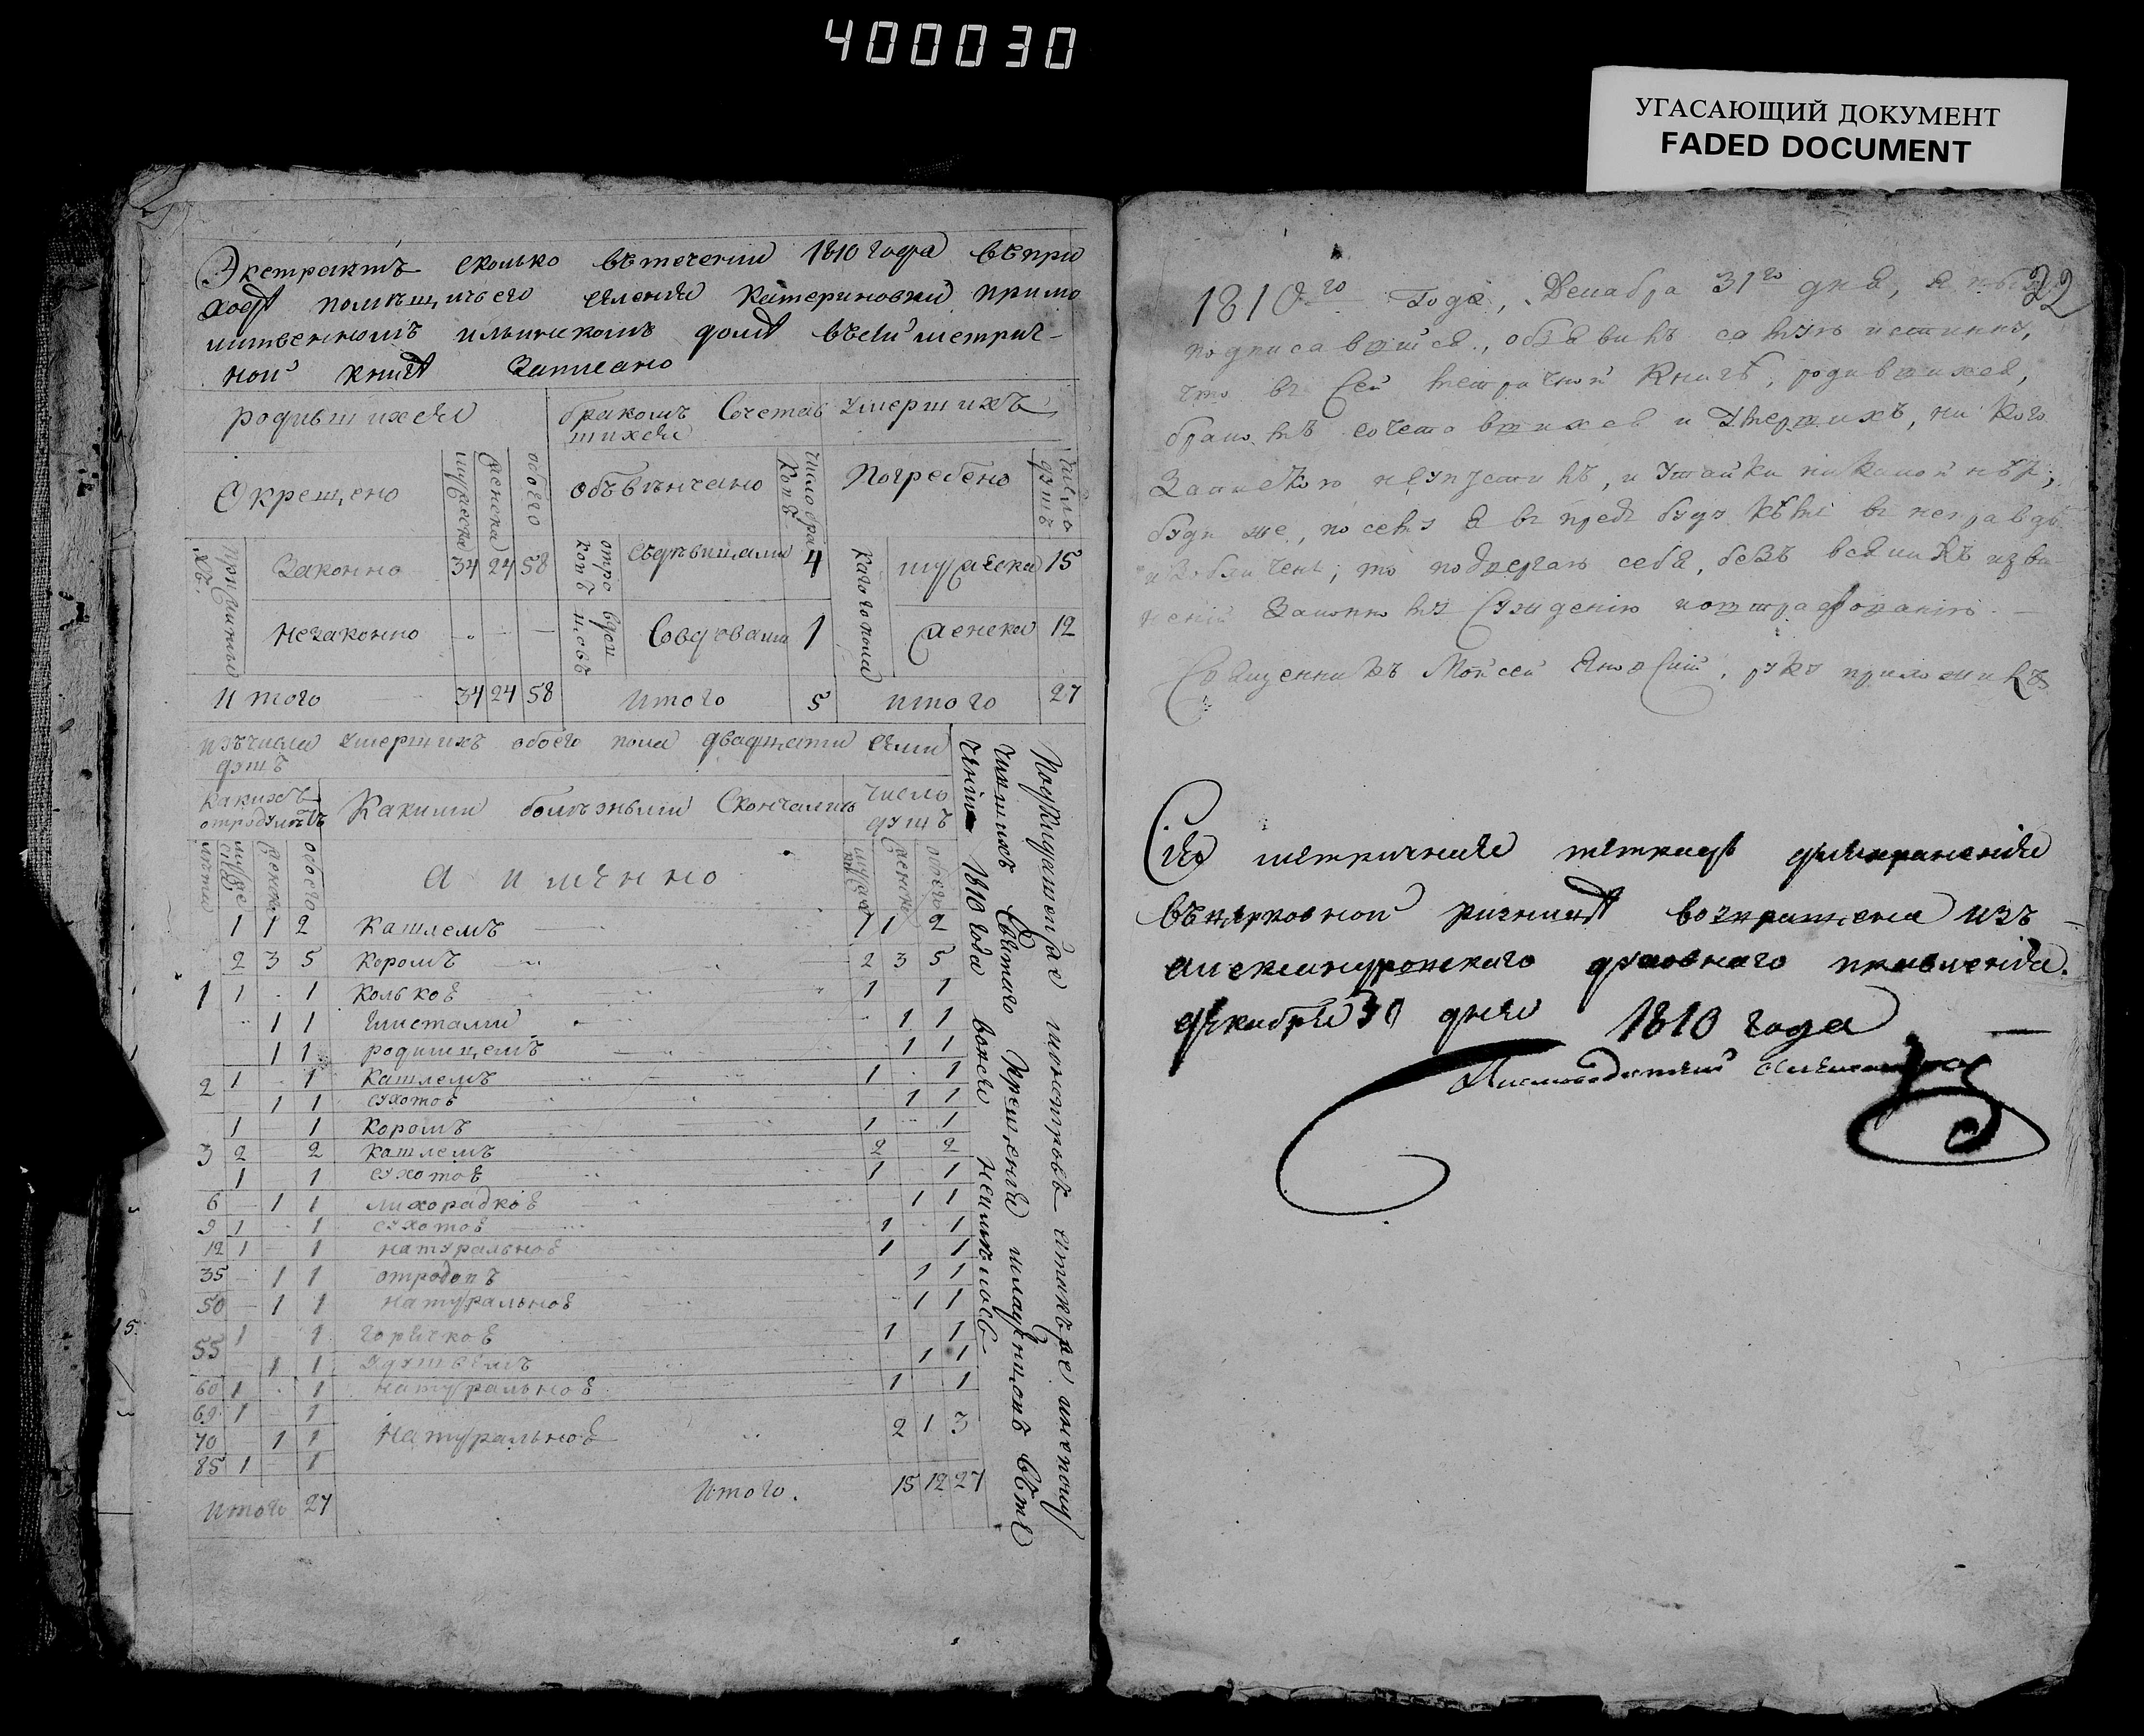 400030
УГАСАЮЩИЙ ДОКУМЕНТ
FADED DOCUMENT
Экстрактъ сколько въ течении 1810 года въ при
ходѣ помѣщичьего селения Катериновки при мо
литвенномъ ильинскомъ домѣ въ сей метрич-
ной книгѣ Записано
родившихся
бракомъ Сочетав
шихся
умершихъ
Окрещено
мужеска
женска
обоего
обвѣнчано
число бра
ковъ
Погребено
число
душъ
Законно 34 24 58
отро
ковъ
Съ дѣвицами 4
какого пола
мужеска 15
Незаконно - - -
вдов
цовъ
Со вдовами 1
женска 12
Итого 34 24 58 Итого 5 итого 27
изъ числа умершихъ обоего пола двадцати семи
душъ
какихъ
отроду лѣтъ
Какими болѣзньми Скончались
число
душъ
лета
муже
ска
женска
обоего
а имянно
мужеска
женска
обоего
1 1 2 Кашлемъ 1 1 2
2 3 5 Коромъ 2 3 5
1 1 - 1 Колькоѣ 1 1
1 1 Глистами 1 1
1 1 родимцемъ 1 1
2 1 - 1 Кашлемъ 1 - 1
1 1 сухотоѣ 1 1
1 - 1 Коромъ 1 - 1
3 2 - 2 Кашлемъ 2 2
1 1 сухотоѣ 1 1
6 - 1 1 лихорадкоѣ 1 1
9 1 - 1 сухотоѣ 1 - 1
12 1 - 1 натуральноѣ 1 1
35 - 1 1 отродовъ 1 1
50 - 1 1 натуральноѣ 1 1
55 1 - 1 горячкоѣ 1 1
1 1 удушьемъ 1 1
60 1 - 1 натуральноѣ 1 1
69 1 - 1
70 1 1 Натуральноѣ 2 1 3
85 1 - 1
Итого 27 Итого. 15 12 27
1810 года
Святаго Крещения младенцовъ
1810го Года, Декабря 31го дня, я
32
подписавшийся, объявилъ самую истинну,
что въ Сей метрачной Книгѣ, родившихся,
бракомъ сочетавшихся и Умершихъ, ни Кого
Запискою не упустилъ, и утайки никакой нѣтъ;
буди же, по сему я въ предь буду кѣмъ въ неправдѣ
изобличенъ; то подвергаю себя, безъ всякихъ изви
нений Законному Сужденію и оштрафованію. —
Священникъ Мойсей Яновский, руку приложилъ
Сия метричная тетрадь для хранения
въ церковной ризницѣ возвращена изъ
александровского духовнаго правления.
декабря 30 дня 1810 года —